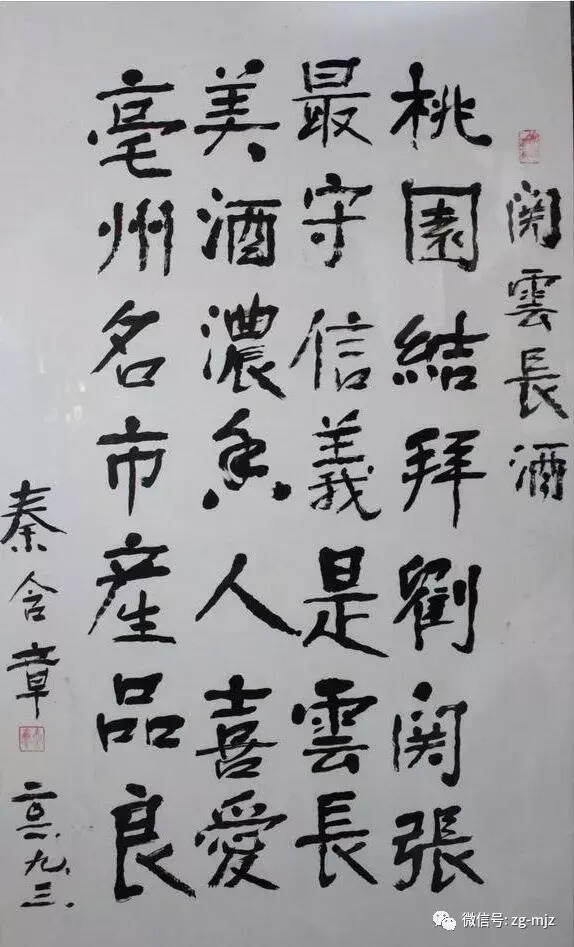 関雲長酒
桃園結拜劉関張
最守信義是雲長
美酒濃香人喜愛
亳州名市産品良
秦含章
九.三.
微信号: zg-mjz